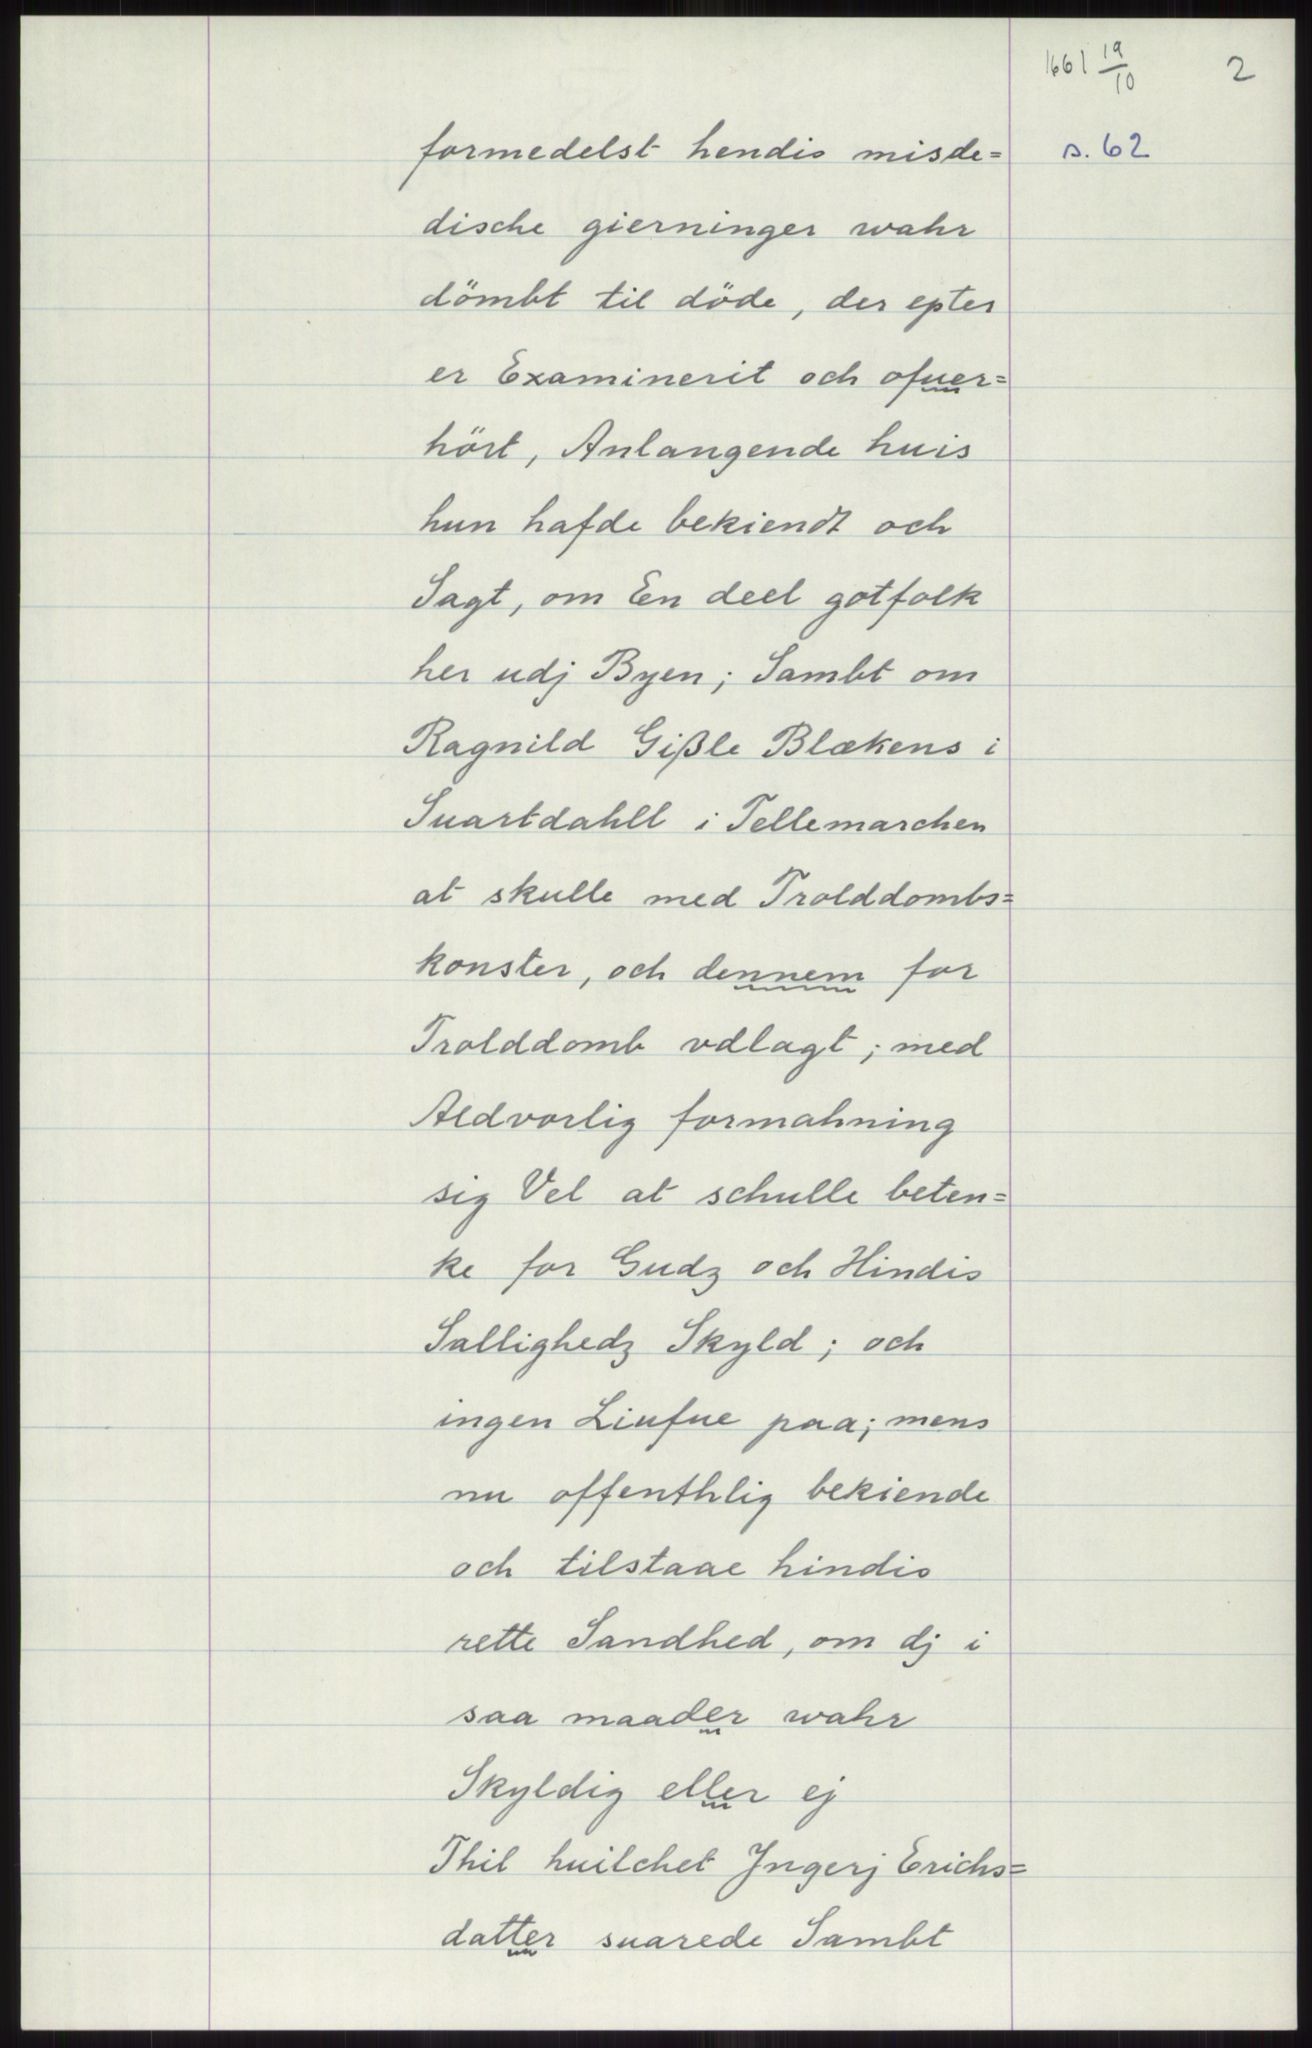 1661 19/10 2
formedelst hendis misde= s. 62
dische gierninger wahr
dömbt til döde, der epter
er Examinerit och ofuer=
hört, Anlangende huis
hun hafde bekiendt och
Sagt, om En deel gotfolk
her udj Byen; Sambt om
Ragnild Gißle Blækens i
Suartdahll i Tellemarchen
at skulle med Trolddombs=
konster, och dennem for
Trolddomb vdlagt; med
Aldvorlig formahning
sig Vel at schulle beten=
ke for Gudz och Hindis
Sallighedz Skyld; och
ingen Liufue paa; mens
nu offenthlig bekiende
och tilstaae hindis
rette Sandhed, om dj i
saa maader wahr
Skyldig eller ej
Thil huilchet Jngerj Erichs=
datter suarede Sambt